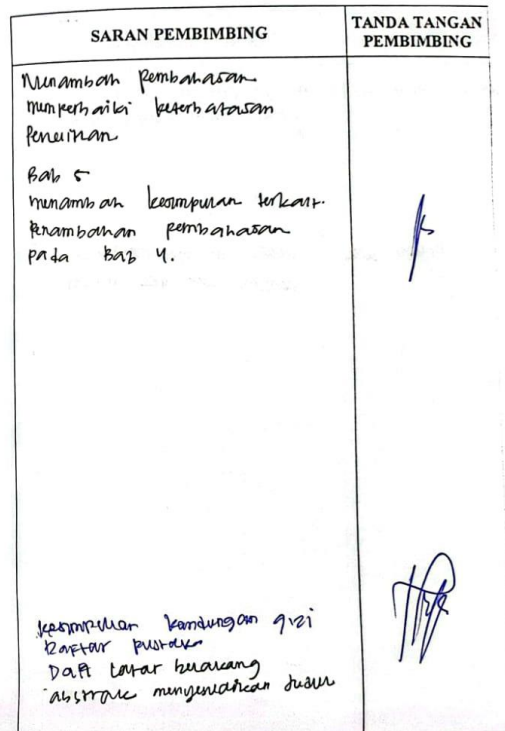 SARAN PEMBIMBING
TANDA TANGAN
PEMBIMBING
Menambah pembahasan
memperbaiki keterbatasan
Penelitian
Bab 5
menambah kesimpulan terkait.
Penambahan pembahasan
pada Bab 4.
kesimpulan kandungan gizi
Daftar pustaka
latar belakang
abstrak menyesuaikan